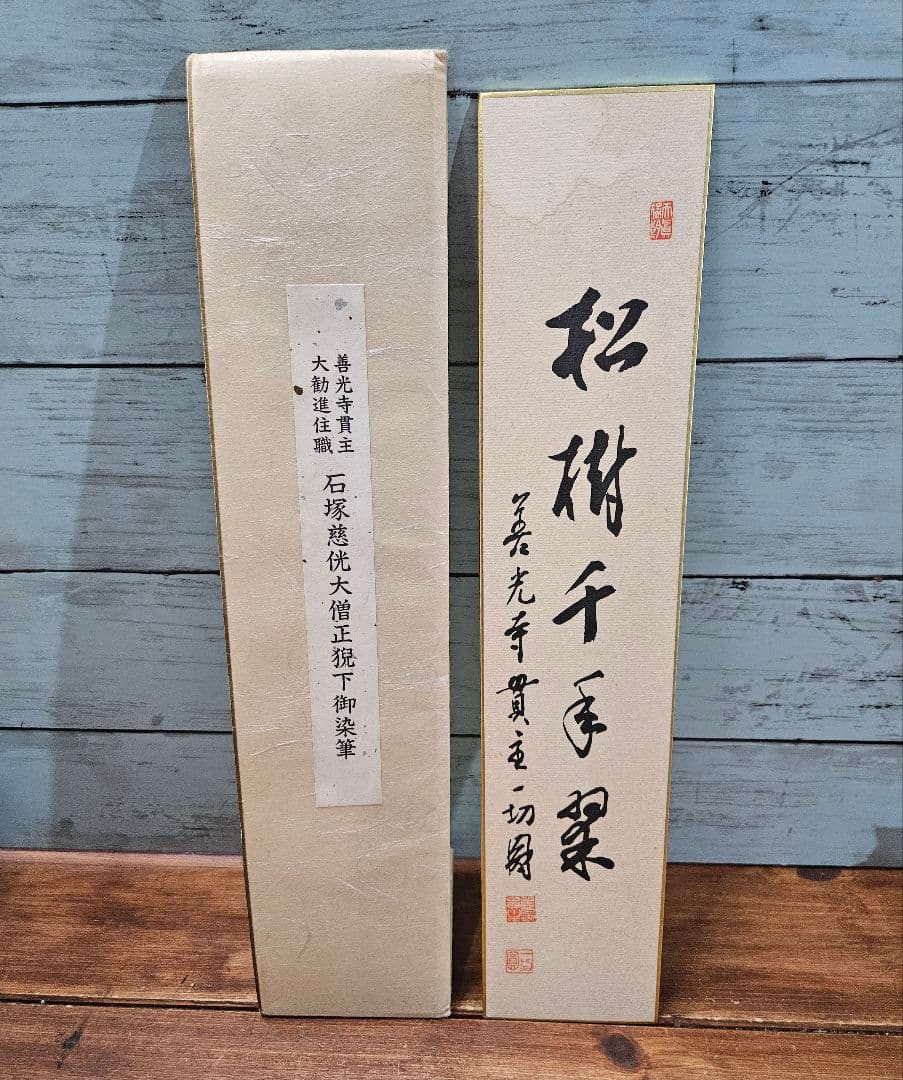 善光寺貫主
大勧進住職
石塚慈侊大僧正猊下御染筆
松樹千年翠
善光寺貫主 一切圓